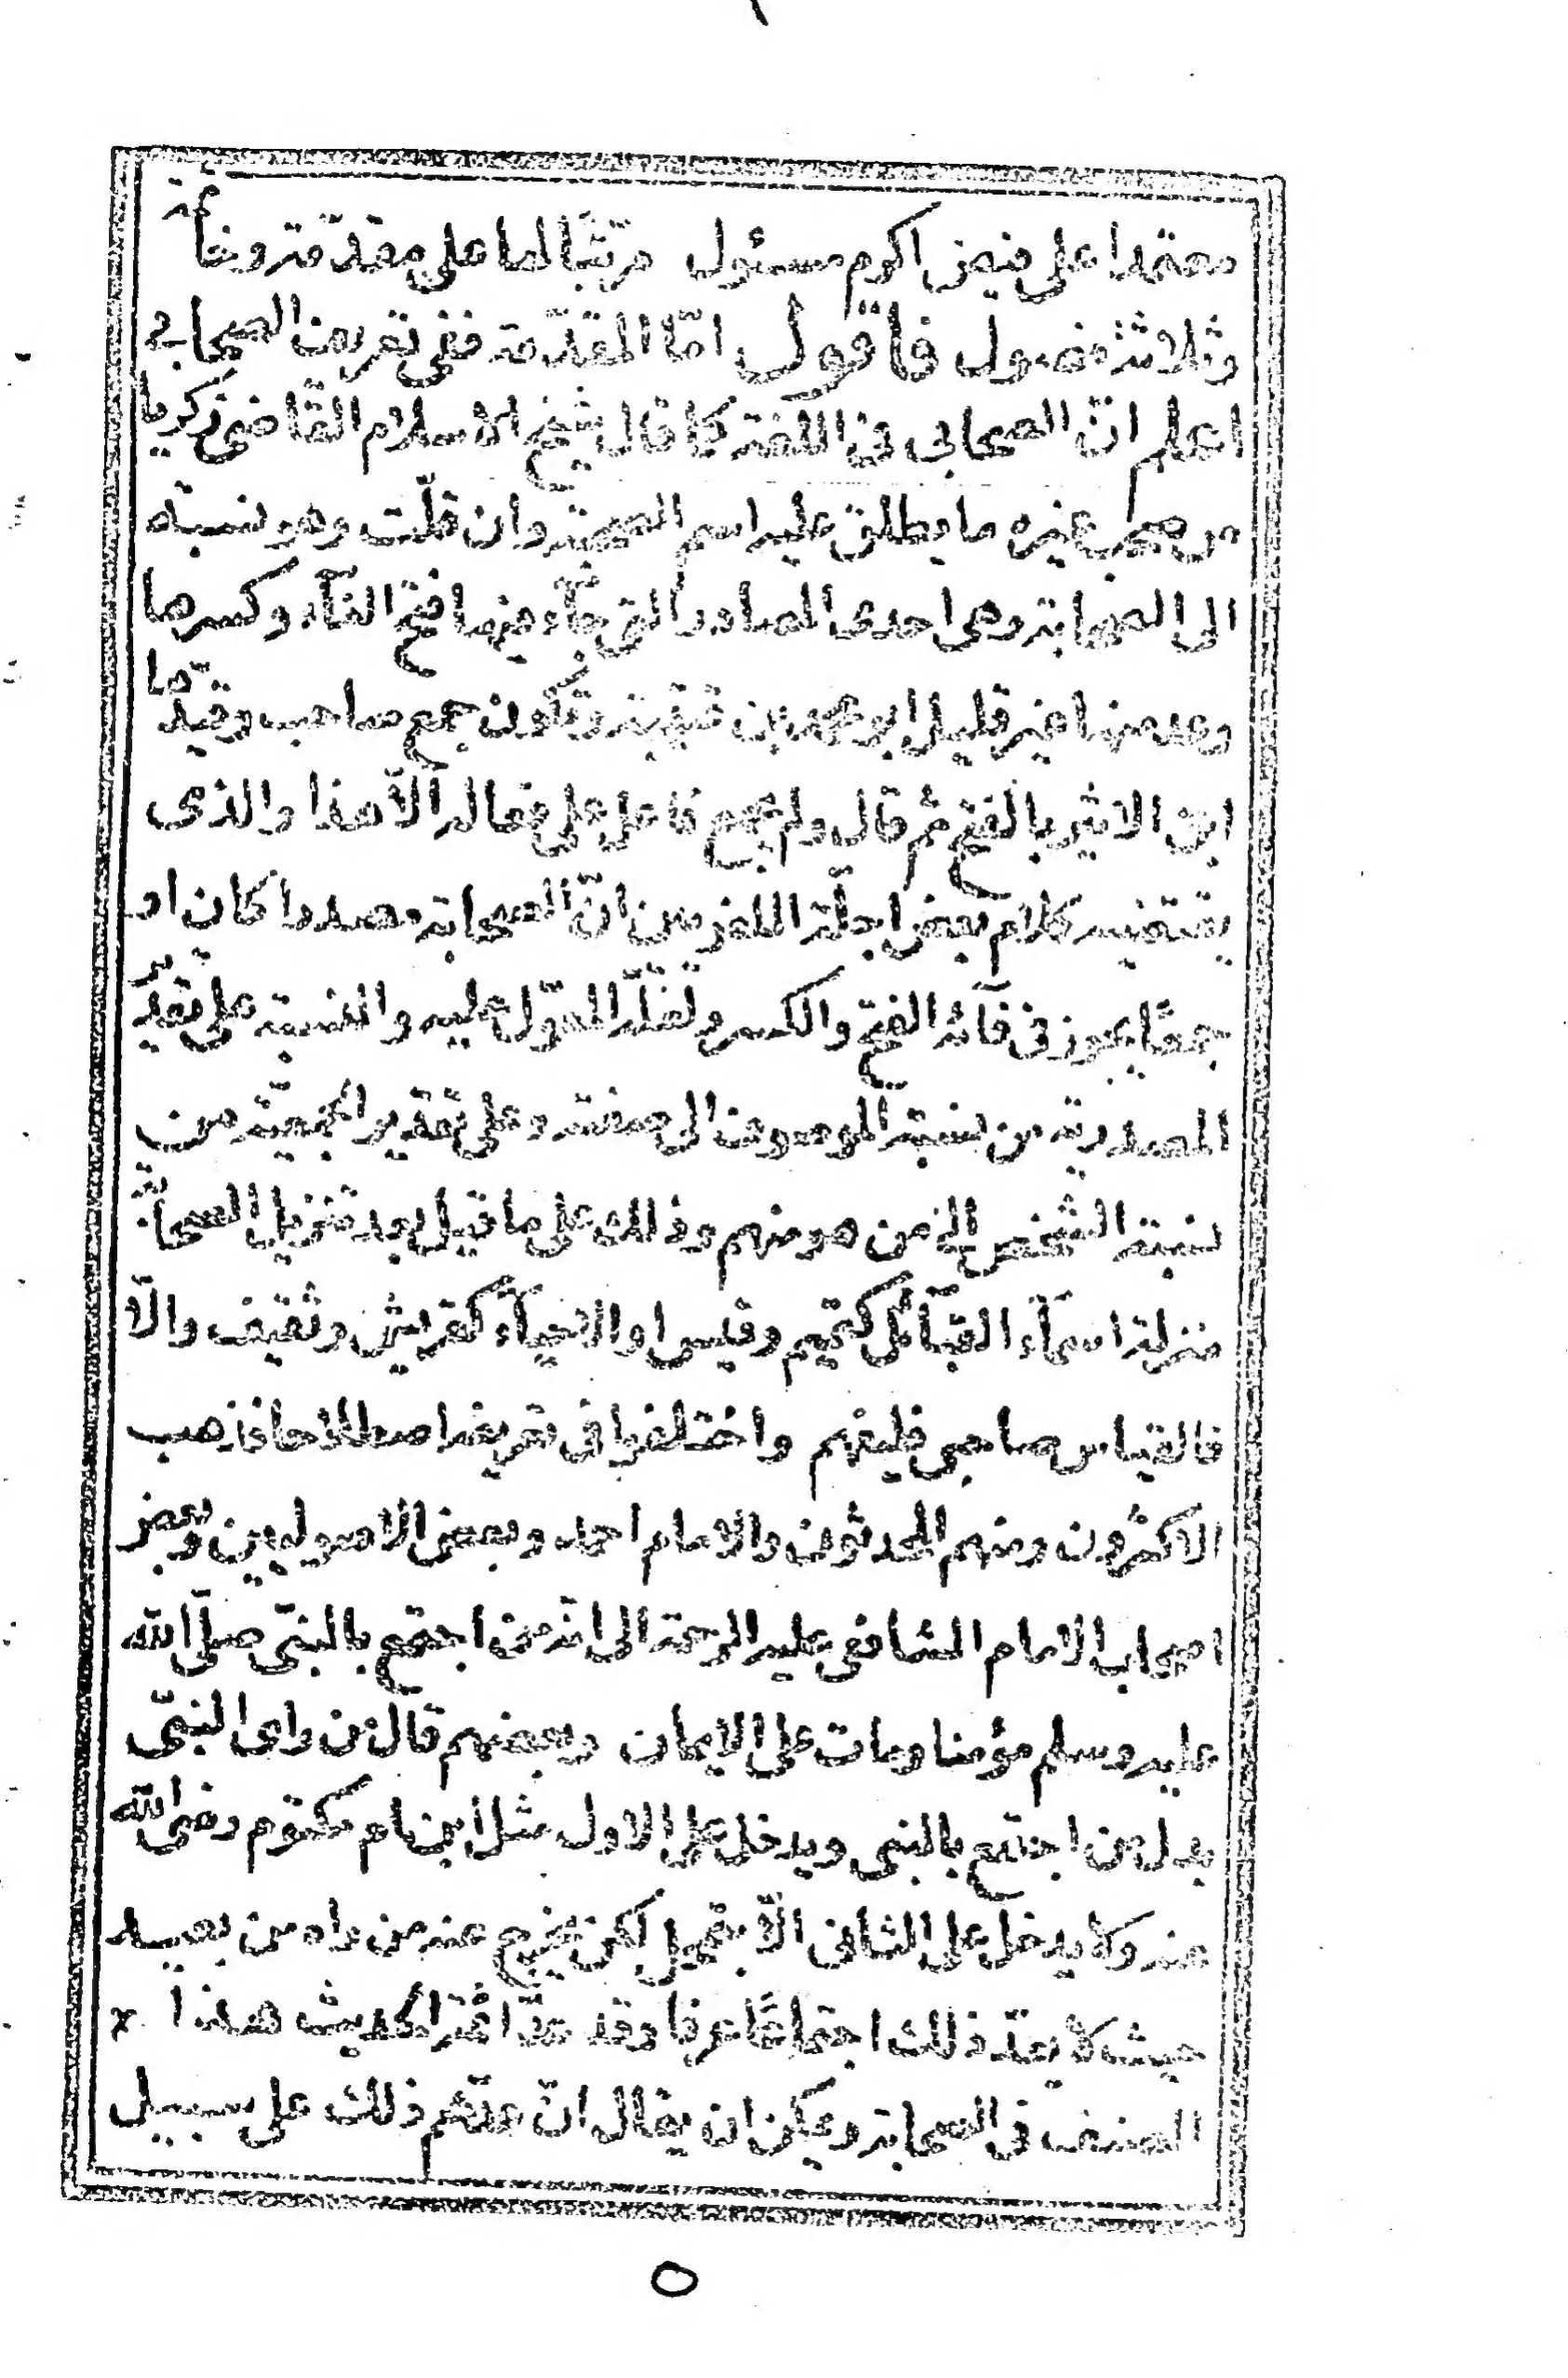 معتمدا على فيض اكرم مسئول مرتبًا لها على مقدّمة وخاتمة
وثلاثة فصول فاقول امّا المقدّمة ففى تعريف الصحابي
اعلم انّ الصحابى فى اللغة كما قال شيخ الاسلام القاضى زكريا
من صحب غيره ما يطلق عليه اسم الصحبة وان قلّت وهو نسبة
الى الصحابة وهى احدى المصادر التى جآء فيها فتح الفآء وكسرها
وعد منها غير قليل ابو محمد بن قتيبة وتكون جمع صاحب وقيّدها
ابن الاثير بالفتح ثم قال ولم يجمع فاعل على فعالة الّا هذا والذى
يقتضيه كلام بعض اجلّة اللغويين انّ الصحابة مصدرا كان او
جمعًا يجوز فى فآئه الفتح والكسر ولعلّه المعوّل عليه والنسبة على تقدير
المصدرية من نسبة الموصوف الى صفته وعلى تقدير الجمعيّة من
نسبة الشخص الى من هو منهم وذلك على ما قيل بعد تنزيل الصحابة
منزلة اسمآء القبآئل كتميم وقيس او الاحيآء كقريش وثقيف والّا
فالقياس صاحبى فليفهم واختلفوا فى تعريفه اصطلاحا فذهب
الاكثرون ومنهم المحدثون والامام احمد وبعض الاصوليين وبعض
اصحاب الامام الشافعى عليه الرحمة الى انّه من اجتمع بالنبىّ صلّى الله
عليه وسلم مؤمنا ومات على الايمان وبعضهم قال من راى النبىّ
بدل من اجتمع بالنبى ويدخل على الاول مثل ابن ام مكتوم رضى الله
عنه ولا يدخل على الثانى الّا بتمحل لكن يخرج عنه من راه من بعيد
حيث لا يعدّ ذلك اجتماعًا عرفا وقد عدّ ائمّة الحديث هذا
الصنف فى الصحابة ويمكن ان يقال انّ عدّهم ذلك على سبيل
٥